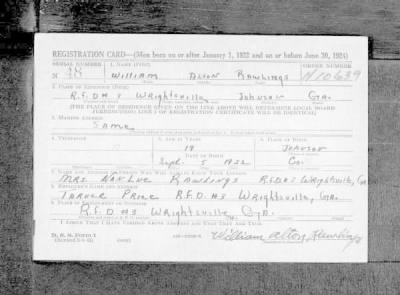 REGISTRATION CARD—(Men born on or after January 1, 1922 and on or before June 30, 1924)
SERIAL NUMBER 1. NAME (Print) ORDER NUMBER
N 48 William Alton Rawlings N10639
2. PLACE OF RESIDENCE (Print)
R.F.D #5 Wrightsville, Johnson Ga.
(THE PLACE OF RESIDENCE GIVEN ON THE LINE ABOVE WILL DETERMINE LOCAL BOARD
JURISDICTION; LINE 2 OF REGISTRATION CERTIFICATE WILL BE IDENTICAL)
3. MAILING ADDRESS
Same
4. TELEPHONE 5. AGE IN YEARS 6. PLACE OF BIRTH
19 Johnson
DATE OF BIRTH
Sept. 5 1922 Co.
7. NAME AND ADDRESS OF PERSON WHO WILL ALWAYS KNOW YOUR ADDRESS
Mrs Rawlings R.F.D #5 Wrightsville, Ga.
8. EMPLOYER'S NAME AND ADDRESS
Price R.F.D. #5 Wrightsville, Ga.
9. PLACE OF EMPLOYMENT OR BUSINESS
R.F.D #5 Wrightsville Ga.
I AFFIRM THAT I HAVE VERIFIED ABOVE ANSWERS AND THAT THEY ARE TRUE.
D. S. S. FORM 1
William Alton Rawlings